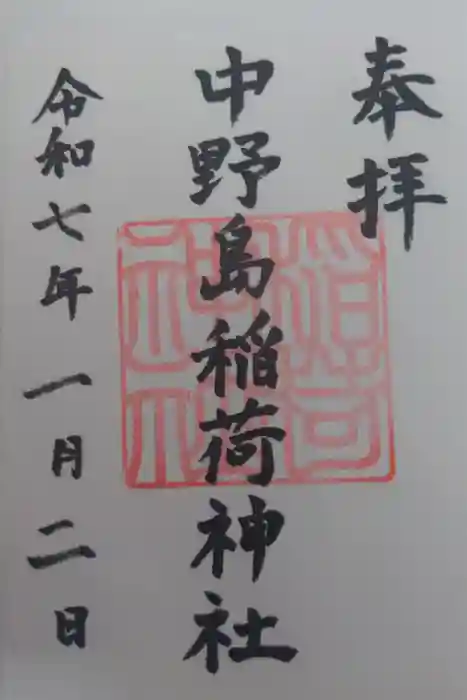 奉拝
中野島稲荷神社
令和七年一月二日
稲荷
神社